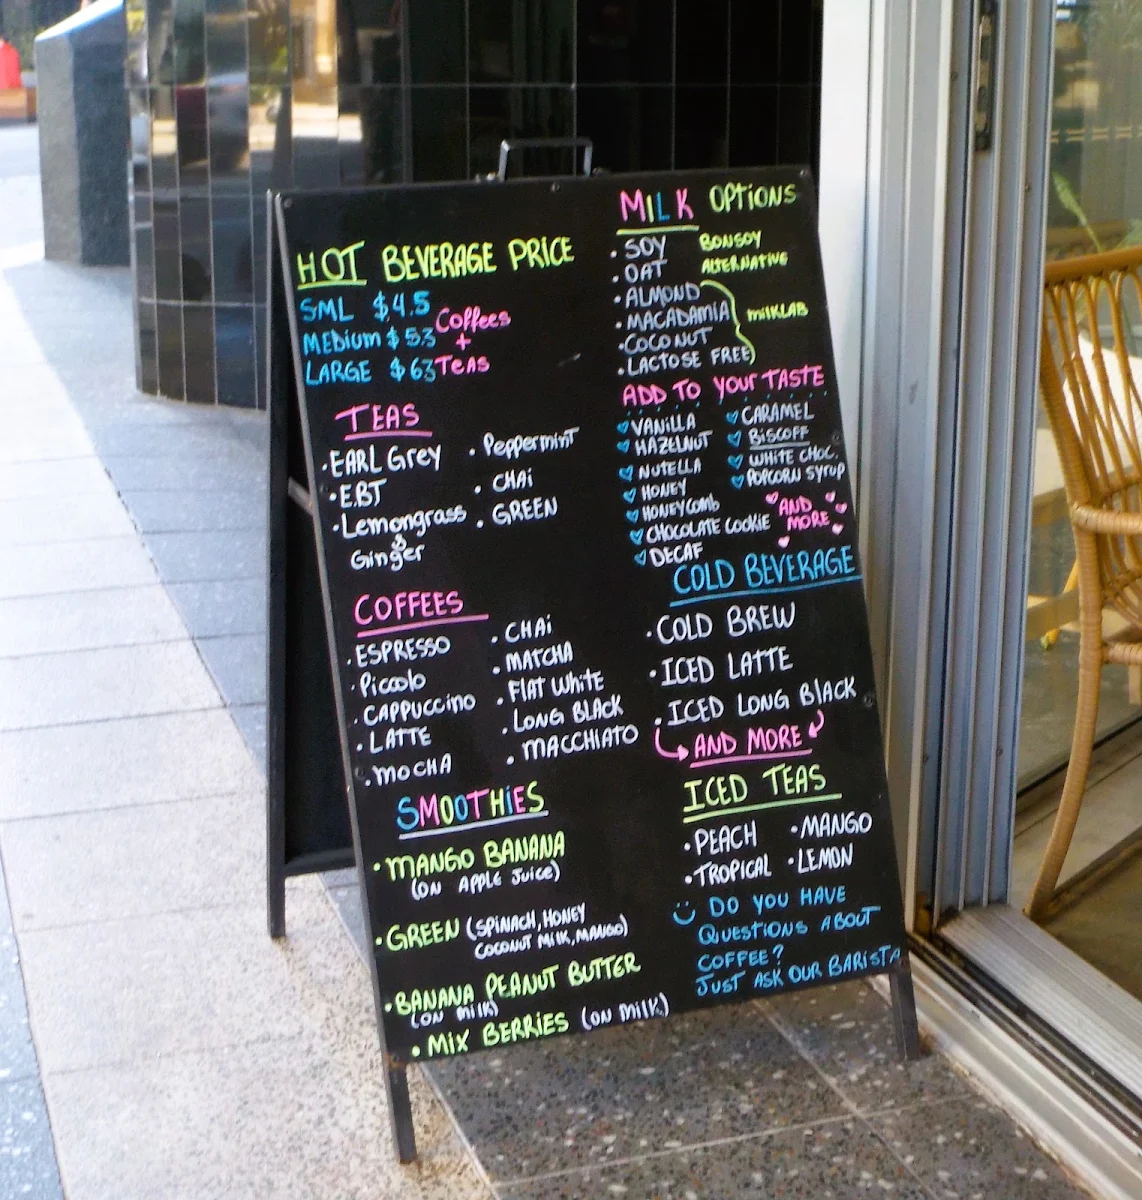 HOT BEVERAGE PRICE
SML $4.5
MEDIUM $5.3
LARGE $63
Coffees
+
TEAS
TEAS
• EARL Grey
• EBT
• Lemongrass
&
Ginger
• Peppermint
• CHAi
• GREEN
COFFEES
• ESPRESSO
• Piccolo
• CAPPUCCINO
• LATTE
• MOCHA
• CHAi
• MATCHA
• FLAT WHITE
• LONG BLACK
• MACCHIATO
SMOOTHiES
• MANGO BANANA
(ON APPLE JUiCE)
• GREEN (SPINACH, HONEY
COCONUT MILK, MANGO)
• BANANA PEANUT BUTTER
(ON MILK)
• MIX BERRIES (ON MILK)
MiLK OPTiONS
• SOY
• OAT
BONSOY
ALTERNATIVE
• ALMOND
• MACADAMIA
• COCONUT
• LACTOSE FREE
MILKLAB
ADD TO YOUR TASTE
VANiLLA
HAZELNUT
NUTELLA
HONEY
HONEYCOMB
CHOCOLATE COOKIE
DECAF
CARAMEL
BISCOFF
WHITE CHOC.
POPCORN SYRUP
AND
MORE
COLD BEVERAGE
• COLD BREW
• ICED LATTE
• ICED LONG BLACK
AND MORE
ICED TEAS
• PEACH
• TROPICAL
• MANGO
• LEMON
DO YOU HAVE
QUESTIONS ABOUT
COFFEE?
JUST ASK OUR BARISTA